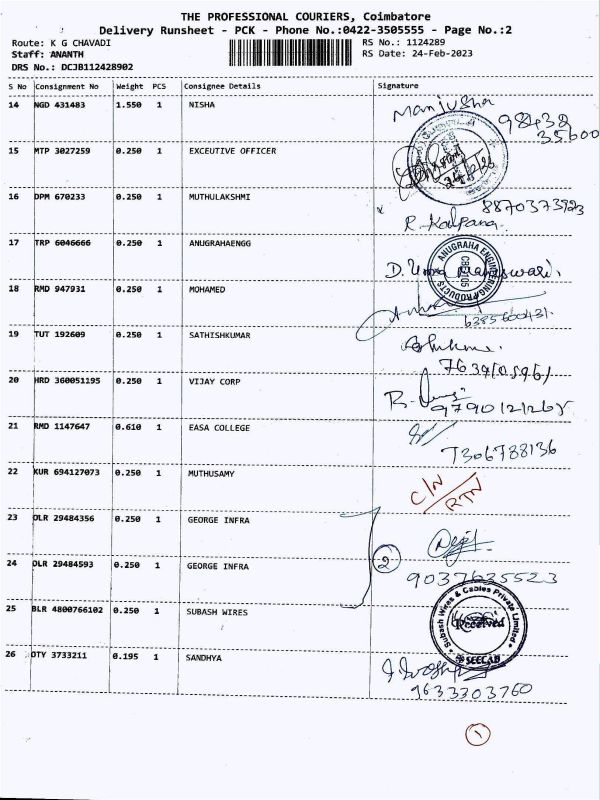 THE PROFESSIONAL COURIERS, Coimbatore
Delivery Runsheet - PCK - Phone No.:0422-3505555 - Page No.:2
Route: K G CHAVADI RS No.: 1124289
Staff: ANANTH RS Date: 24-Feb-2023
DRS No.: DCJB112428902
S No Consignment No Weight PCS Consignee Details Signature
14 NGD 431483 1.550 1 NISHA Manjusha
98438
35600
15 MTP 3027259 0.250 1 EXCEUTIVE OFFICER
24/2/23
16 DPM 670233 0.250 1 MUTHULAKSHMI
8870373923
R. Kalpana
17 TRP 6046666 0.250 1 ANUGRAHAENGG
ANUGRAHA ENGINEERING PRODUCTS
CBE-105
D. Uma Maheswari
18 RMD 947931 0.250 1 MOHAMED
6385600431
19 TUT 192609 0.250 1 SATHISHKUMAR
20 HRD 360051195 0.250 1 VIJAY CORP
21 RMD 1147647 0.610 1 EASA COLLEGE
7306788136
22 KUR 694127073 0.250 1 MUTHUSAMY C/N
RTN
23 OLR 29484356 0.250 1 GEORGE INFRA
24 OLR 29484593 0.250 1 GEORGE INFRA 2
9037635523
25 BLR 4800766102 0.250 1 SUBASH WIRES
Subash Wires & Cables Private Limited
Received
SEECAB
26 OTY 3733211 0.195 1 SANDHYA
9633303760
1